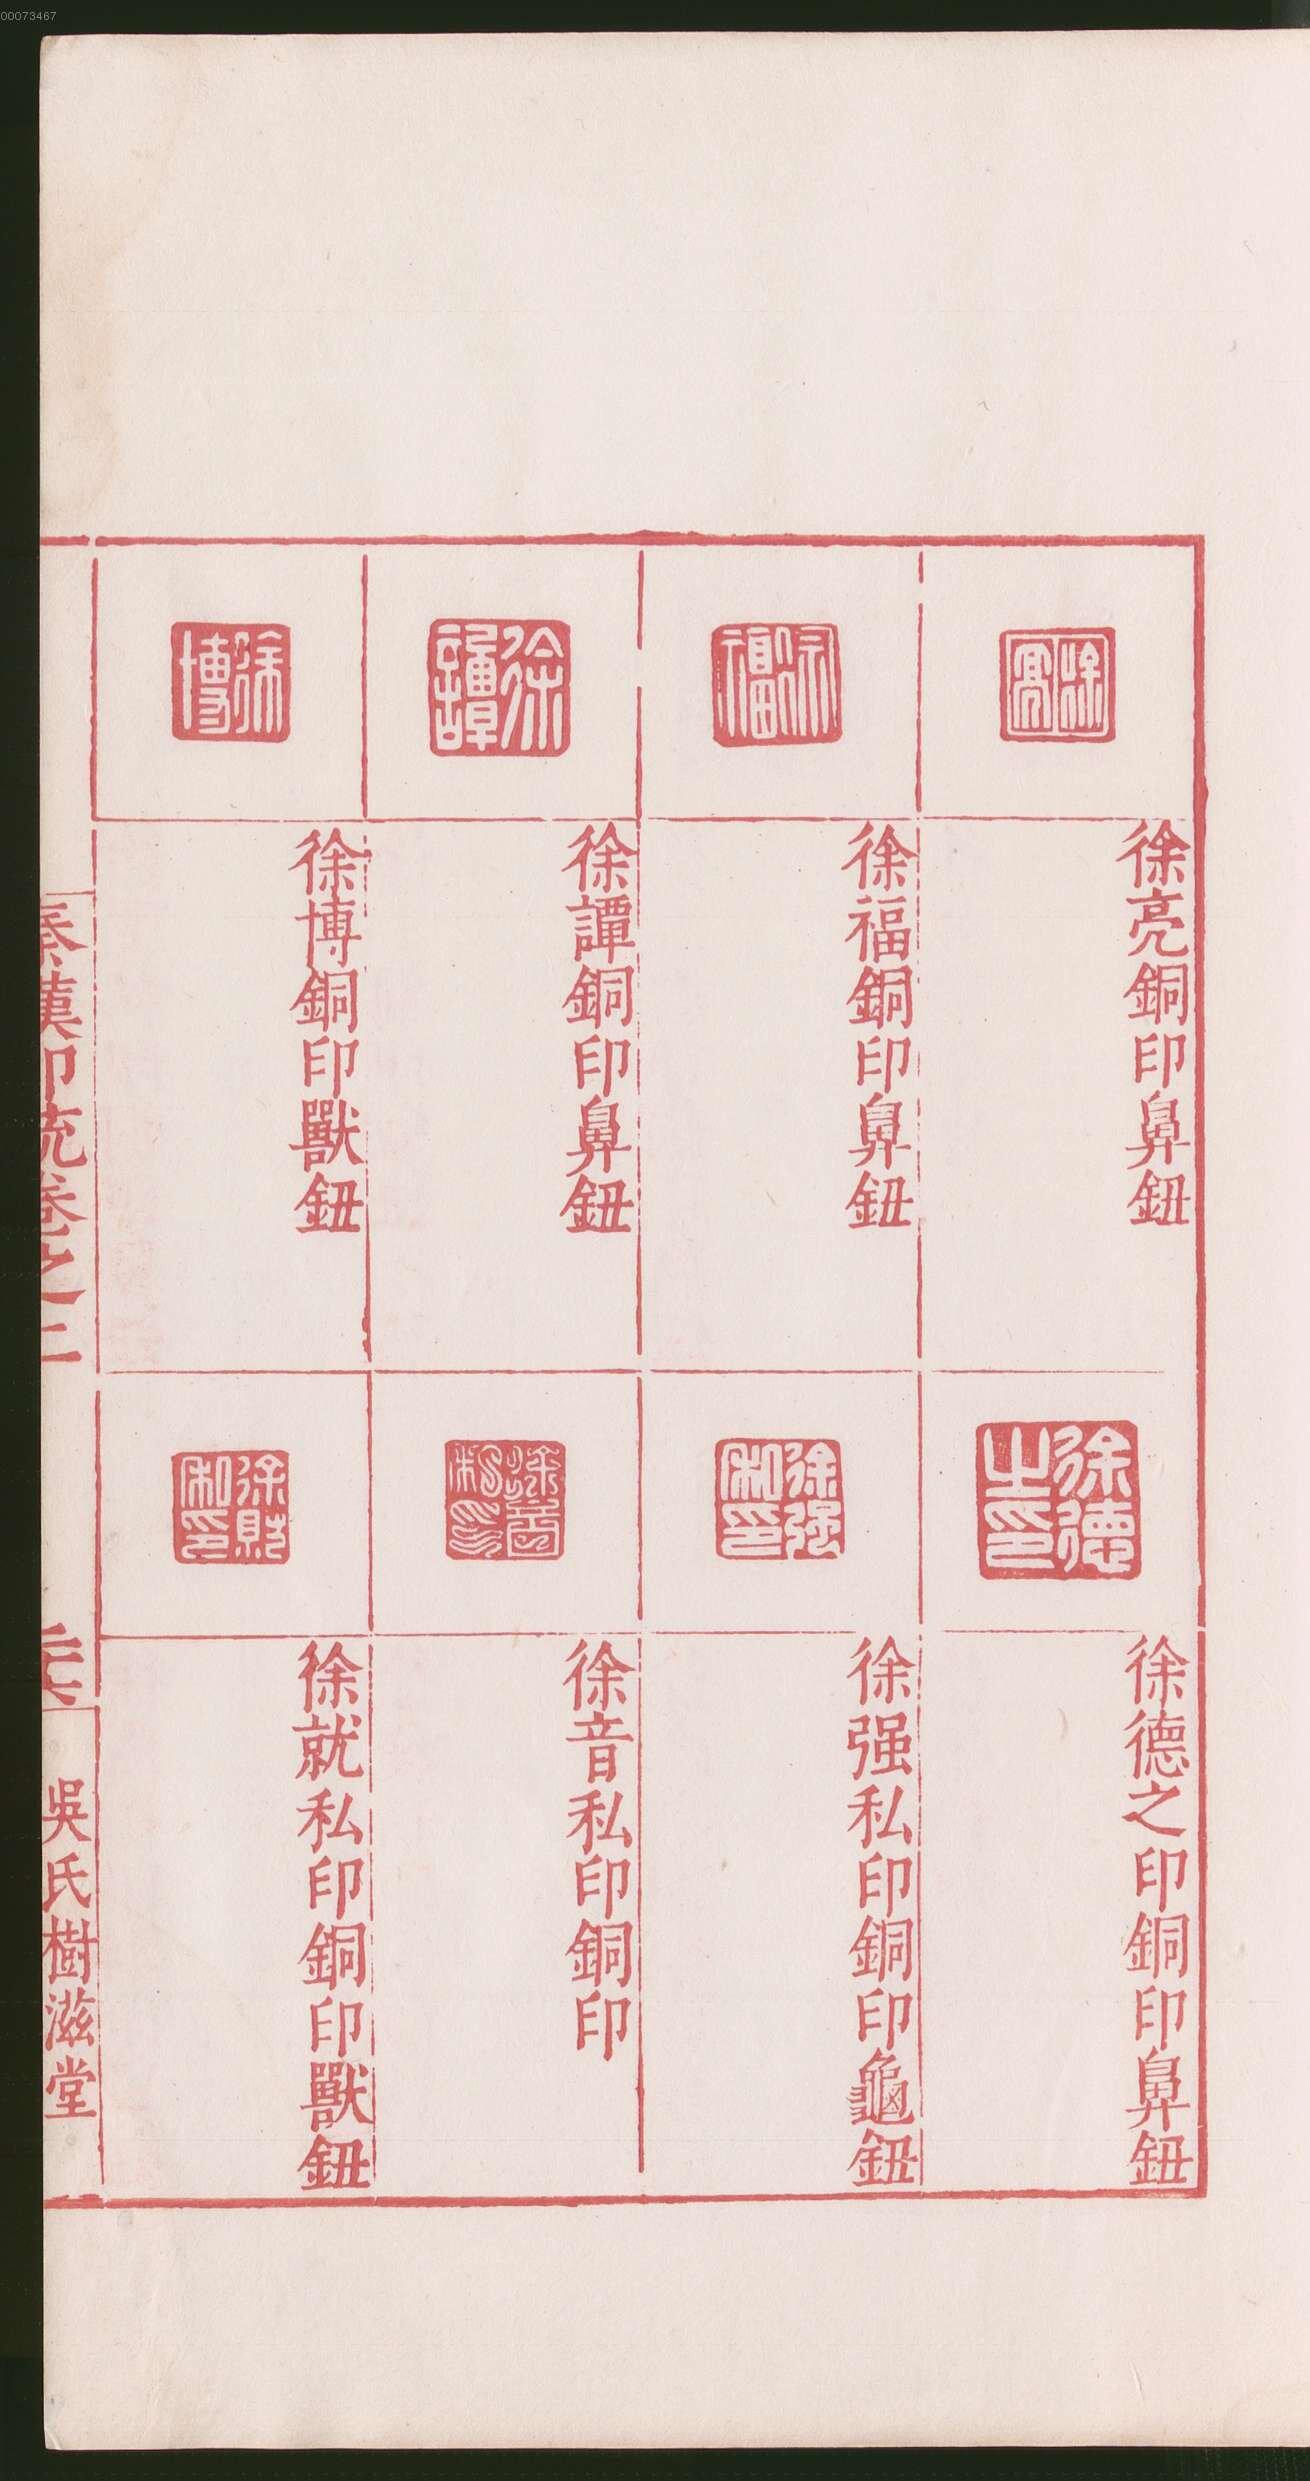 00073467
徐亮
徐亮銅印鼻鈕
徐福
徐福銅印鼻鈕
徐譚
徐譚銅印鼻鈕
徐博
徐博銅印獸鈕
徐德之印
徐德之印銅印鼻鈕
徐强私印
徐强私印銅印龜鈕
徐音私印
徐音私印銅印
徐就私印銅印獸鈕
秦漢印統卷之二
吳氏樹滋堂